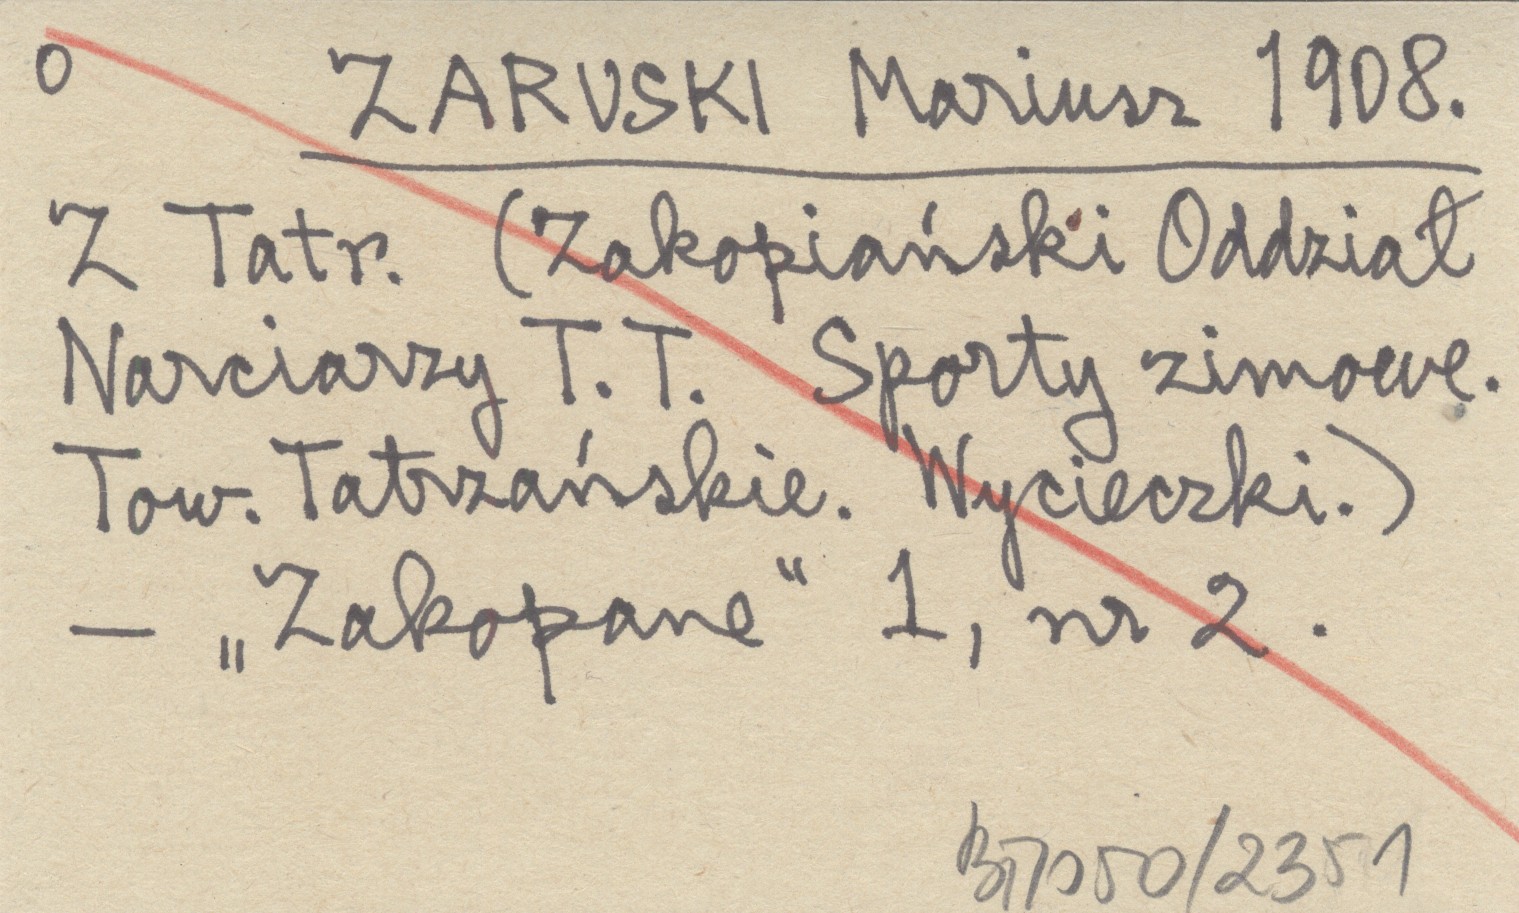 o ZARUSKI Mariusz 1908.
Z Tatr. (Zakopiański Oddział
Narciarzy T.T. Sporty zimowe.
Tow. Tatrzańskie. Wycieczki.)
— „Zakopane“ 1, nr 2.
050/2351